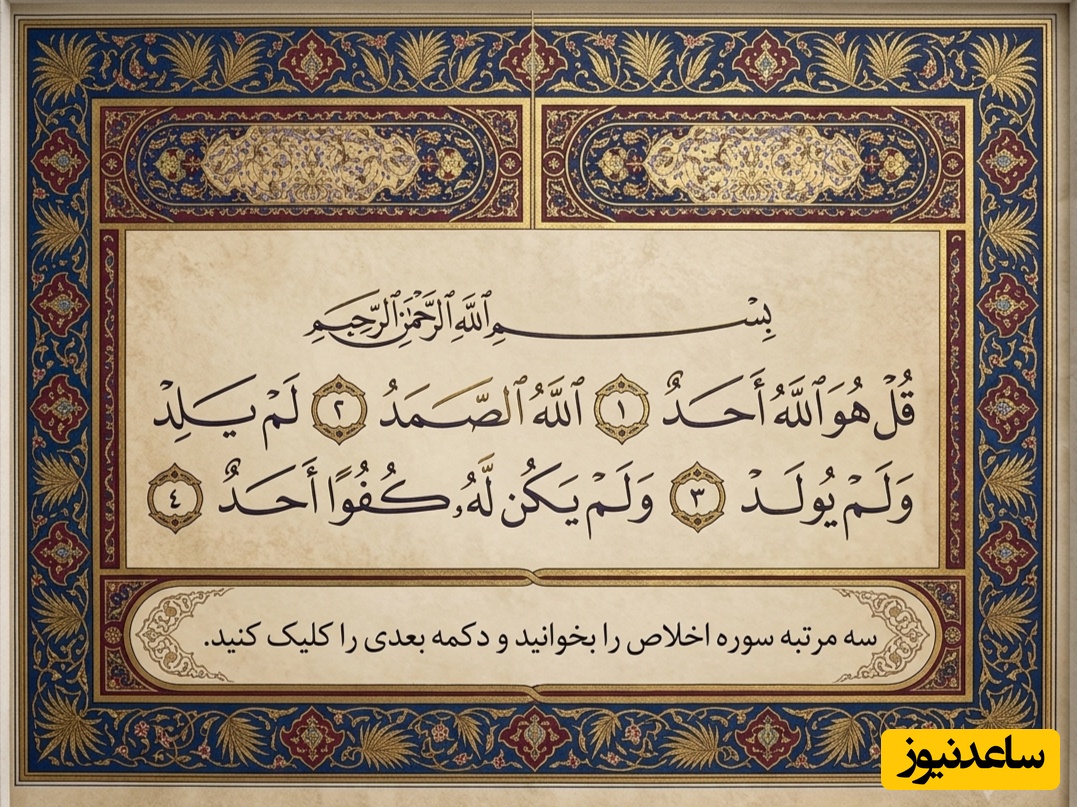 بِسْمِ ٱللَّهِ ٱلرَّحْمَٰنِ ٱلرَّحِيمِ
قُلْ هُوَ ٱللَّهُ أَحَدٌ ١ ٱللَّهُ ٱلصَّمَدُ ٢ لَمْ يَلِدْ
وَلَمْ يُولَدْ ٣ وَلَمْ يَكُن لَّهُۥ كُفُوًا أَحَدٌ ٤
سه مرتبه سوره اخلاص را بخوانید و دکمه بعدی را کلیک کنید.
ساعدنیوز